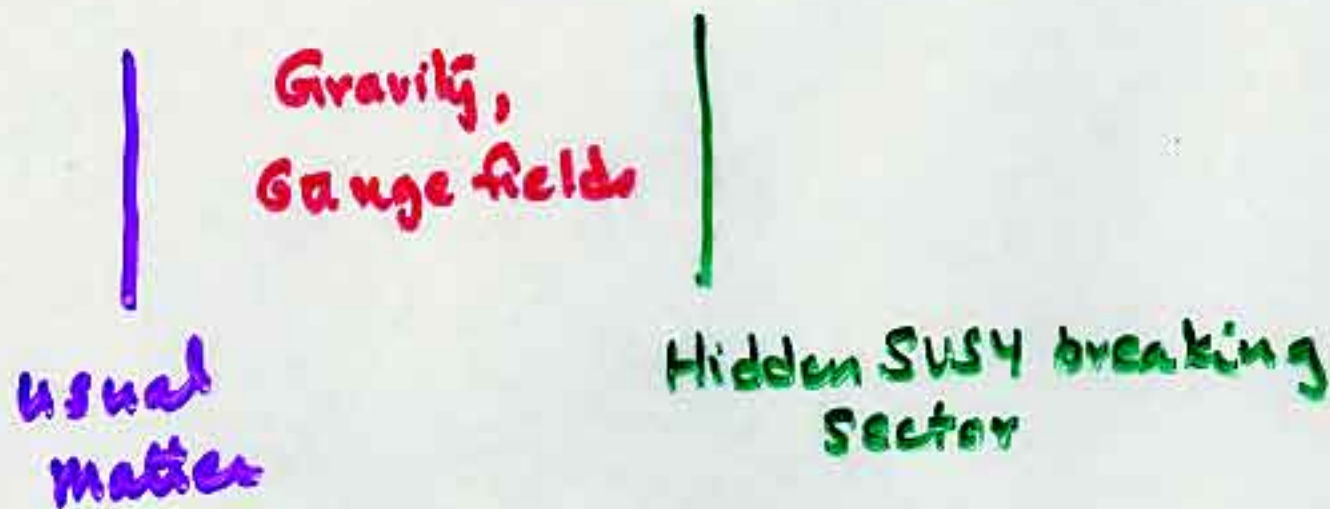 Gravity,
Gauge fields
usual
matter
Hidden SUSY breaking
sector